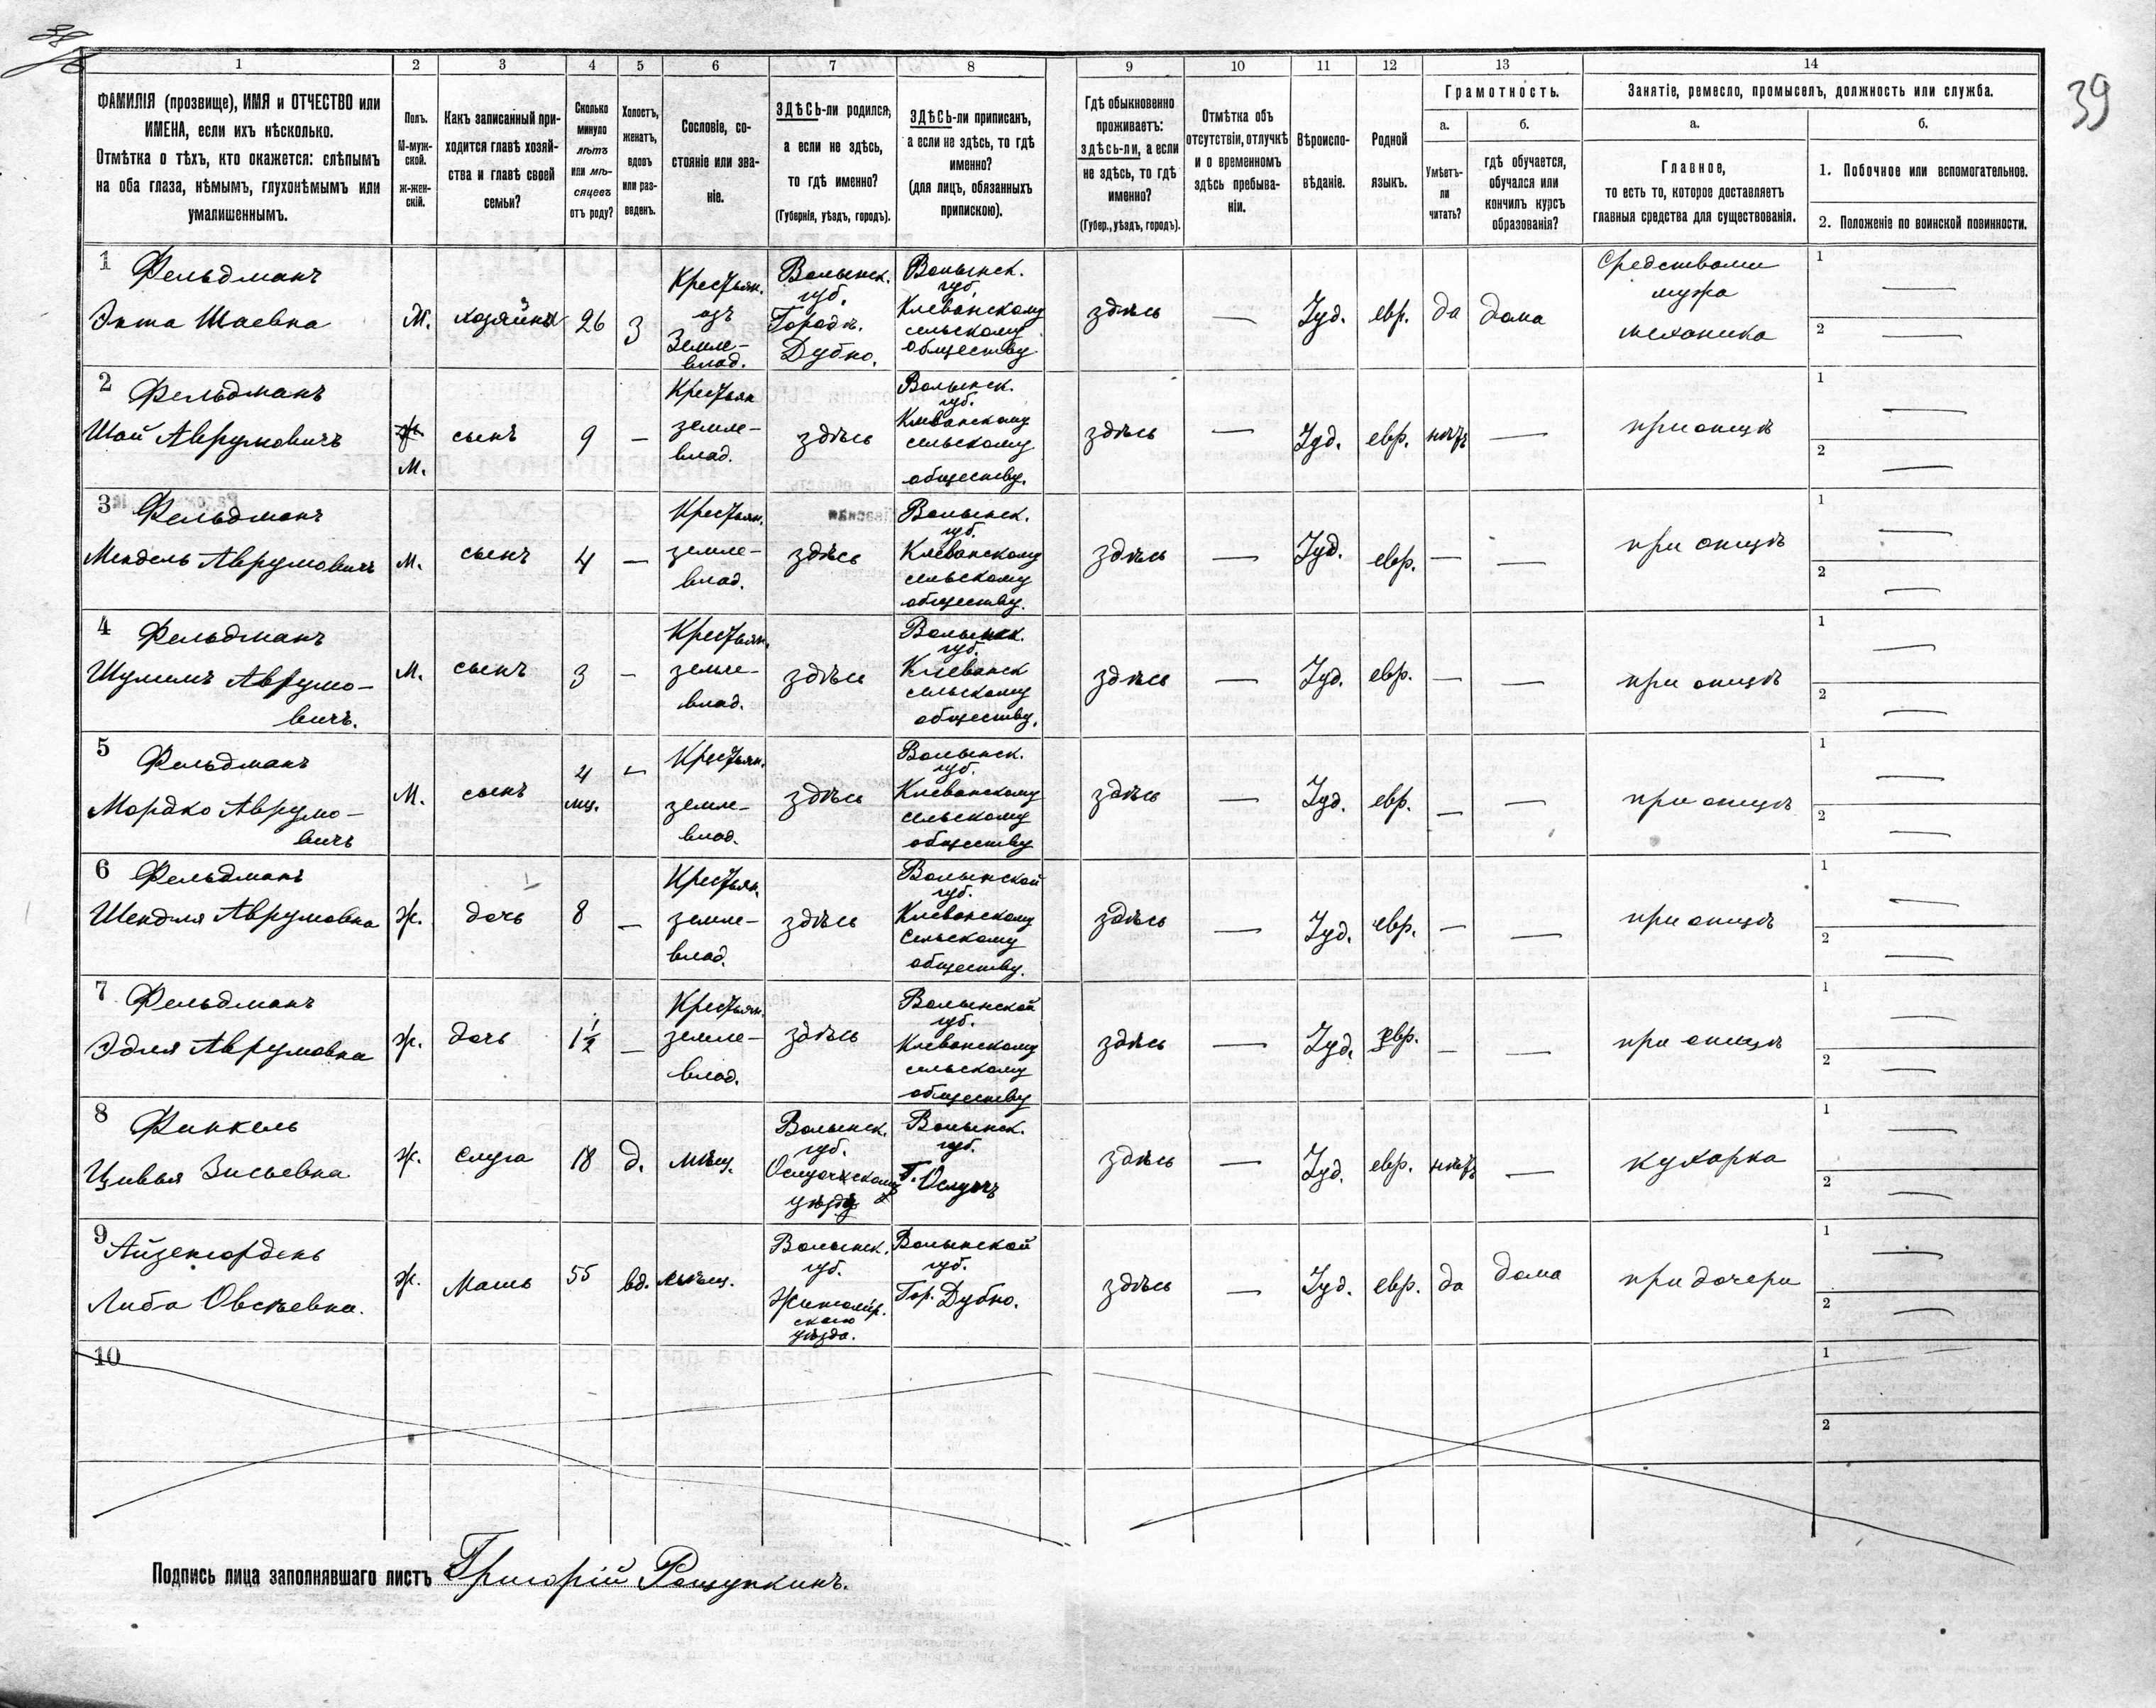 39
1
2
3
4
5
6
7
8
9
10
11
12
13
14
ФАМИЛІЯ (прозвище), ИМЯ и ОТЧЕСТВО или
ИМЕНА, если ихъ нѣсколько.
Отмѣтка о тѣхъ, кто окажется: слѣпымъ
на оба глаза, нѣмымъ, глухонѣмымъ или
умалишеннымъ.
Полъ.
М-муж-
ской.
ж-жен-
скій.
Какъ записанный при-
ходится главѣ хозяй-
ства и главѣ своей
семьи?
Сколько
минуло
лѣтъ
или мѣ-
сяцевъ
отъ роду?
Холостъ,
женатъ,
вдовъ
или раз-
веденъ.
Сословіе, со-
стояніе или зва-
ніе.
ЗДѢСЬ-ли родился,
а если не здѣсь,
то гдѣ именно?
(Губернія, уѣздъ, городъ).
ЗДѢСЬ-ли приписанъ,
а если не здѣсь, то гдѣ
именно?
(для лицъ, обязанныхъ
припискою).
Гдѣ обыкновенно
проживаетъ:
здѣсь-ли, а если
не здѣсь, то гдѣ
именно?
(Губер., уѣздъ, городъ).
Отмѣтка объ
отсутствіи, отлучкѣ
и о временномъ
здѣсь пребыва-
ніи.
Вѣроиспо-
вѣданіе.
Родной
языкъ.
Грамотность.
а.
Умѣетъ-
ли
читать?
б.
гдѣ обучается,
обучался или
кончилъ курсъ
образованія?
Занятіе, ремесло, промыселъ, должность или служба.
а.
Главное,
то есть то, которое доставляетъ
главныя средства для существованія.
б.
1. Побочное или вспомогательное.
2. Положеніе по воинской повинности.
1 Фельдманъ
Энта Шаевна
М.
хозяйка
26
З
Крестьян.
изъ
Земле-
влад.
Волынск.
губ.
Городъ.
Дубно.
Волынск.
губ.
Клеванскому
сельскому
обществу
здѣсь
—
Іуд.
евр.
да
дома
Средствами
мужа
механика
1 —
2 —
2 Фельдманъ
Шай Аврумовичъ
М.
сынъ
9
—
Крестьян
земле-
влад.
здѣсь
Волынск.
губ.
Клеванскому
сельскому
обществу.
здѣсь
—
Іуд.
евр.
нѣтъ
—
при отцѣ
1 —
2 —
3 Фельдманъ
Мендель Аврумовичъ
М.
сынъ
4
—
Крестьян.
земле-
влад.
здѣсь
Волынск.
губ.
Клеванскому
сельскому
обществу.
здѣсь
—
Іуд.
евр.
—
—
при отцѣ
1 —
2 —
4 Фельдманъ
Шулимъ Аврумо-
вичъ.
М.
сынъ
3
—
Крестьян.
земле-
влад.
здѣсь
Волынск.
губ.
Клеванск
сельскому
обществу.
здѣсь
—
Іуд.
евр.
—
—
при отцѣ
1 —
2 —
5 Фельдманъ
Мордко Аврумо-
вичъ
М.
сынъ
4
мц.
—
Крестьян.
земле-
влад.
здѣсь
Волынск.
губ.
Клеванскому
сельскому
обществу
здѣсь
—
Іуд.
евр.
—
—
при отцѣ
1 —
2 —
6 Фельдманъ
Шендля Аврумовна
Ж.
дочь
8
—
Крестьян.
земле-
влад.
здѣсь
Волынской
губ.
Клеванскому
сельскому
обществу.
здѣсь
—
Іуд.
евр.
—
—
при отцѣ
1 —
2 —
7 Фельдманъ
Эдля Аврумовна
Ж.
дочь
1½
—
Крестьян.
земле-
влад.
здѣсь
Волынской
губ.
Клеванскому
сельскому
обществу
здѣсь
—
Іуд.
евр.
—
—
при отцѣ
1 —
2 —
8 Финкель
Цивья Зисьевна
Ж.
слуга
18
д.
мѣщ.
Волынск.
губ.
уѣзду
Волынск.
губ.
здѣсь
—
Іуд.
евр.
нѣтъ
—
кухарка
1 —
2 —
9 Айзенгорденъ
Либа Овсѣевна.
Ж.
Мать
55
вд.
мѣщ.
Волынск.
губ.
Житомир.
скаго
уѣзда.
Волынской
губ.
Гор. Дубно.
здѣсь
—
Іуд.
евр.
да
дома
при дочери
1 —
2 —
10
1
2
Подпись лица заполнявшаго листъ Григорій Рощупкинъ.